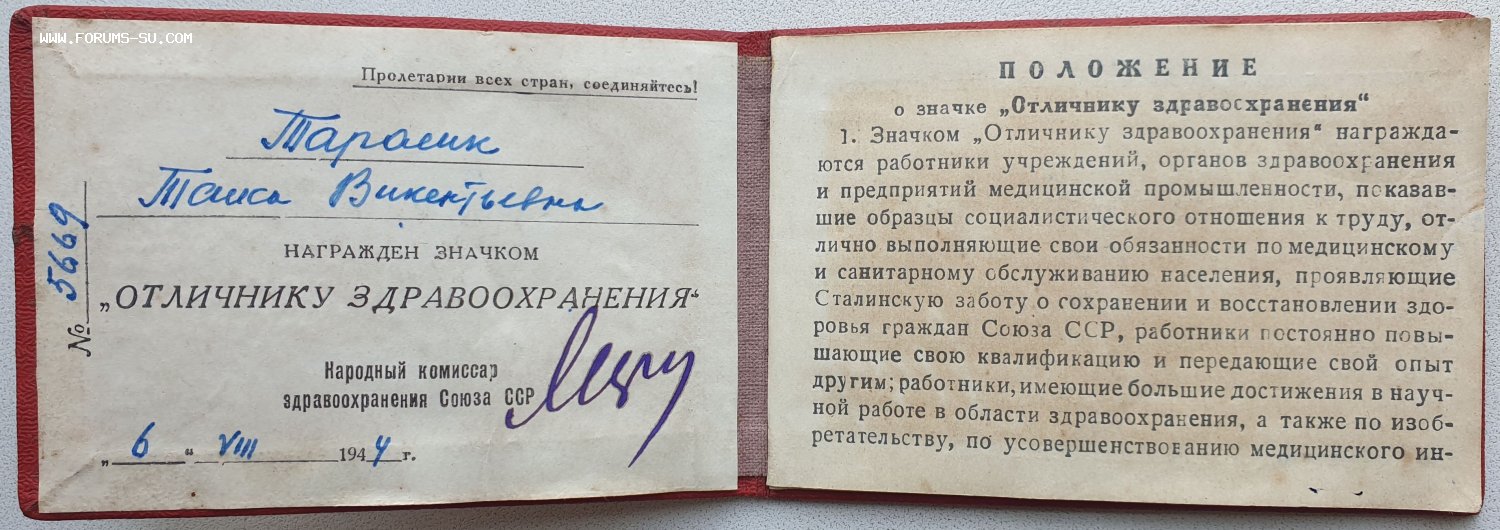 WWW.FORUMS-SU.COM
Пролетарии всех стран, соединяйтесь!
Таисa Викентьевна
№ 5669
НАГРАЖДЕН ЗНАЧКОМ
„ОТЛИЧНИКУ ЗДРАВООХРАНЕНИЯ“
Народный комиссар
здравоохранения Союза ССР
„6“ VIII 1944 г.
ПОЛОЖЕНИЕ
о значке „Отличнику здравоохранения“
1. Значком „Отличнику здравоохранения“ награжда-
ются работники учреждений, органов здравоохранения
и предприятий медицинской промышленности, показав-
шие образцы социалистического отношения к труду, от-
лично выполняющие свои обязанности по медицинскому
и санитарному обслуживанию населения, проявляющие
Сталинскую заботу о сохранении и восстановлении здо-
ровья граждан Союза ССР, работники постоянно повы-
шающие свою квалификацию и передающие свой опыт
другим; работники, имеющие большие достижения в науч-
ной работе в области здравоохранения, а также по изоб-
ретательству, по усовершенствованию медицинского ин-